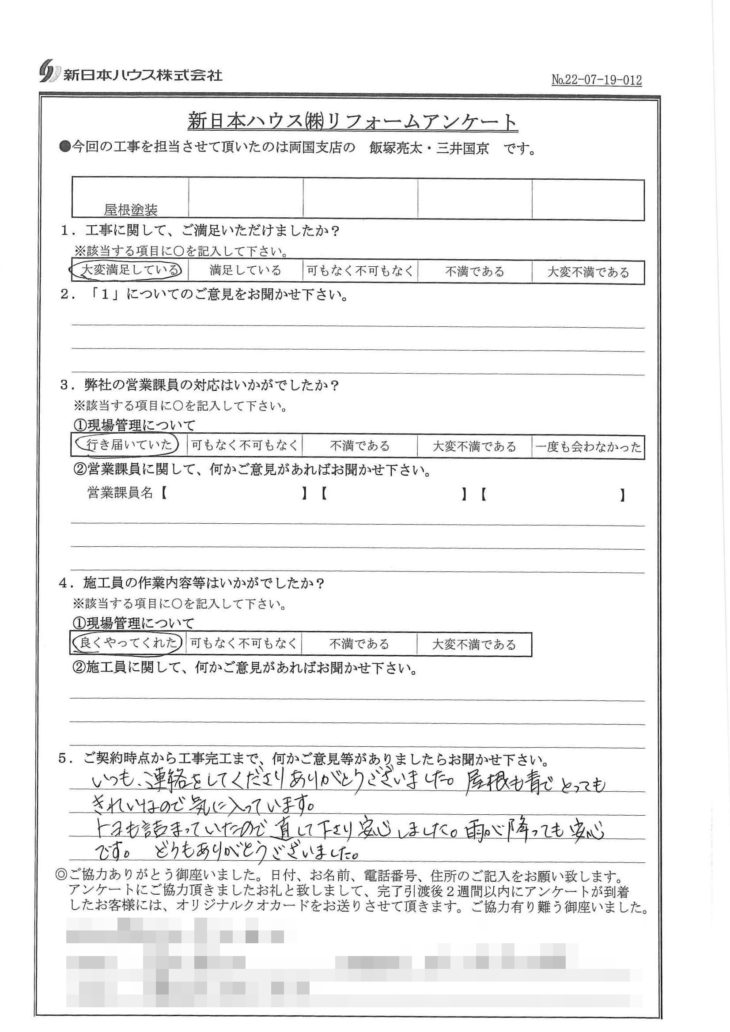 新日本ハウス株式会社
№22-07-19-012
新日本ハウス㈱リフォームアンケート
●今回の工事を担当させて頂いたのは両国支店の 飯塚亮太・三井国京 です。
屋根塗装
1．工事に関して、ご満足いただけましたか？
※該当する項目に○を記入して下さい。
大変満足している 満足している 可もなく不可もなく 不満である 大変不満である
2．「1」についてのご意見をお聞かせ下さい。
3．弊社の営業課員の対応はいかがでしたか？
※該当する項目に○を記入して下さい。
①現場管理について
行き届いていた 可もなく不可もなく 不満である 大変不満である 一度も会わなかった
②営業課員に関して、何かご意見があればお聞かせ下さい。
営業課員名【 】【 】【 】
4．施工員の作業内容等はいかがでしたか？
※該当する項目に○を記入して下さい。
①現場管理について
良くやってくれた 可もなく不可もなく 不満である 大変不満である
②施工員に関して、何かご意見があればお聞かせ下さい。
5．ご契約時点から工事完工まで、何かご意見等がありましたらお聞かせ下さい。
いつも、連絡をしてくださりありがとうございました。屋根も青でとっても
きれいなので気に入っています。
トユも詰まっていたので直して下さり安心しました。雨が降っても安心
です。 どうもありがとうございました。
◎ご協力ありがとう御座いました。日付、お名前、電話番号、住所のご記入をお願い致します。
アンケートにご協力頂きましたお礼と致しまして、完了引渡後2週間以内にアンケートが到着
したお客様には、オリジナルクオカードをお送りさせて頂きます。ご協力有り難う御座いました。